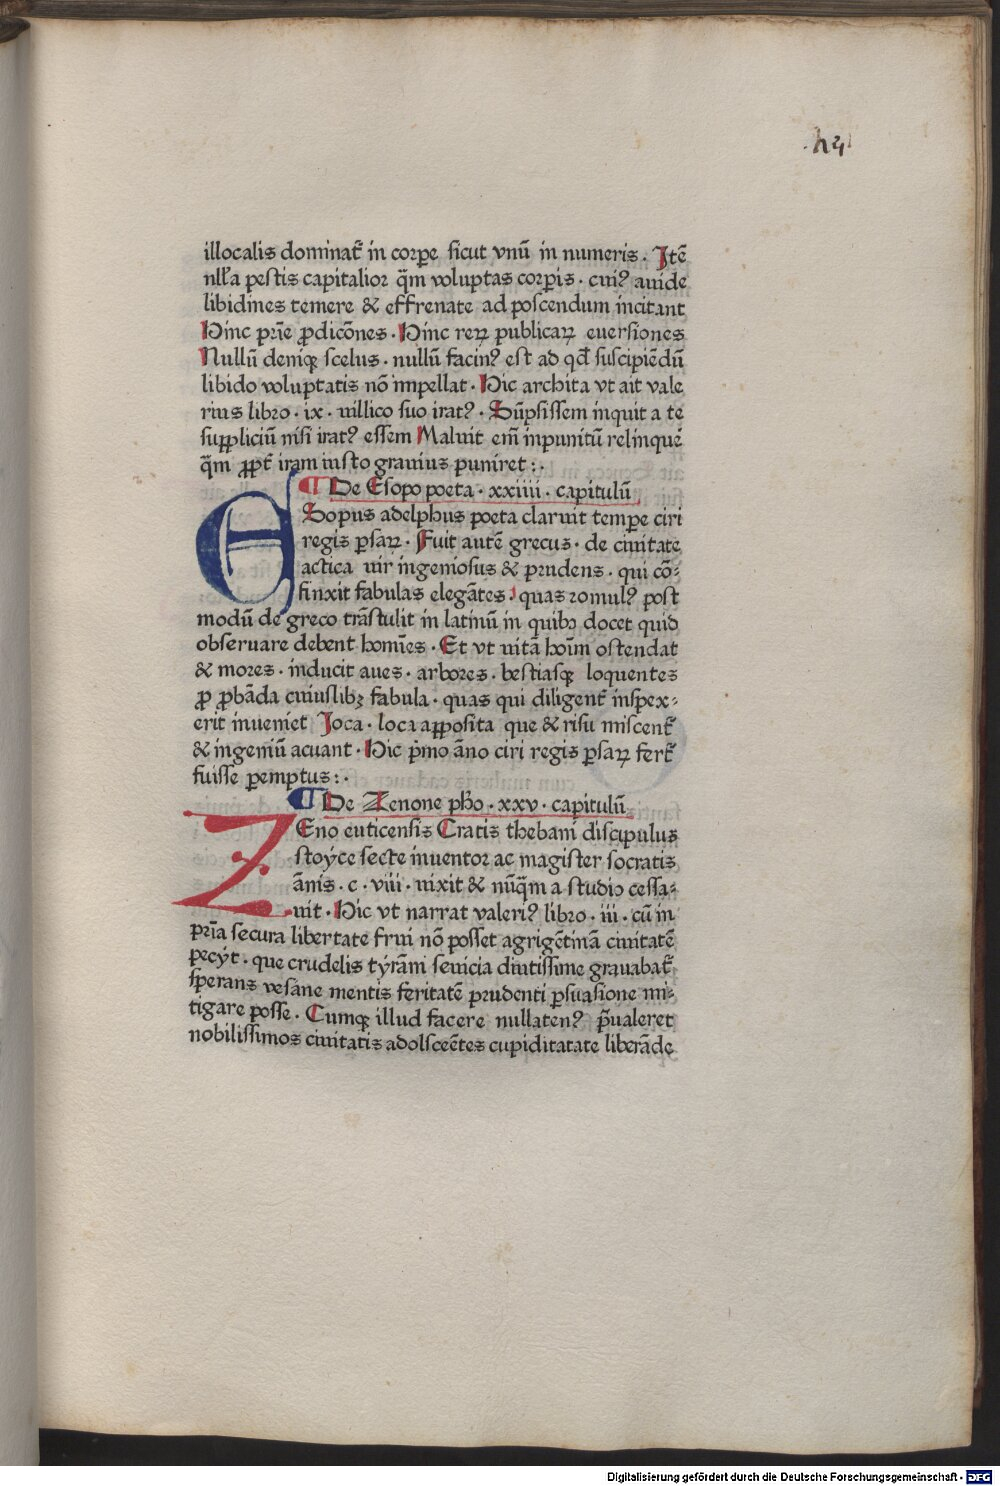 .h4
illocalis dominat᷑ in corpe sicut vnū in numeris . Jtē
nll'a pestis capitalior q̄m voluptas corpis · cui⁹ auide
libidines temere & effrenate ad poscendum incitant
Hinc prīe ꝓdicōnes · Hinc reꝝ publicaꝝ euersiones
Nullū deniqꝫ scelus · nullū facin⁹ est ad qd̄ suscipiēdū
libido voluptatis nō impellat · Hic archita vt ait vale
rius libro · ix · uillico suo irat⁹ · Sūpsissem inquit a te
suppliciū nisi irat⁹ essem Maluit em̄ inpunitū relinquē
q̄m ꝓpt᷑ iram iusto grauius puniret : ·
¶ De Esopo poeta · xxiiii · capitulū
ESopus adelphus poeta claruit tempe ciri
regis ꝑsaꝝ · Fuit autē grecus · de ciuitate
actica uir ingeniosus & prudens · qui cō-
finxit fabulas elegātes · quas romul⁹ post
modū de greco trāstulit in latinū in quibꝰ docet quid
obseruare debent homīes · Et vt uitā hoīm ostendat
& mores · inducit aues · arbores · bestiasqꝫ loquentes
ꝓ ꝓbāda cuiuslibꝫ fabula · quas qui diligent᷑ inspex-
erit inueniet Joca · loca apposita que & risu miscent᷑
& ingeniū acuant · Hic p̄mo āno ciri regis ꝑsaꝝ fert᷑
fuisse ꝑemptus : ·
¶ De Zenone pho · xxv · capitulū
ZEno euticensis Cratis thebani discipulus
stoyce secte inuentor ac magister socratis
ānis · c · viii · uixit & nūq̄m a studio cessa-
uit · Hic vt narrat valeri⁹ libro · iii · cū in
prīa secura libertate frui nō posset agrigētinā ciuitatē
pecyt · que crudelis tyrāni seuicia diutissime grauabat᷑
sperans vesane mentis feritatē prudenti ꝑsuasione mi-
tigare posse · Cumqꝫ illud facere nullaten⁹ p̄ualeret
nobilissimos ciuitatis adolsceētes cupiditatate liberāde
Digitalisierung gefördert durch die Deutsche Forschungsgemeinschaft - DFG